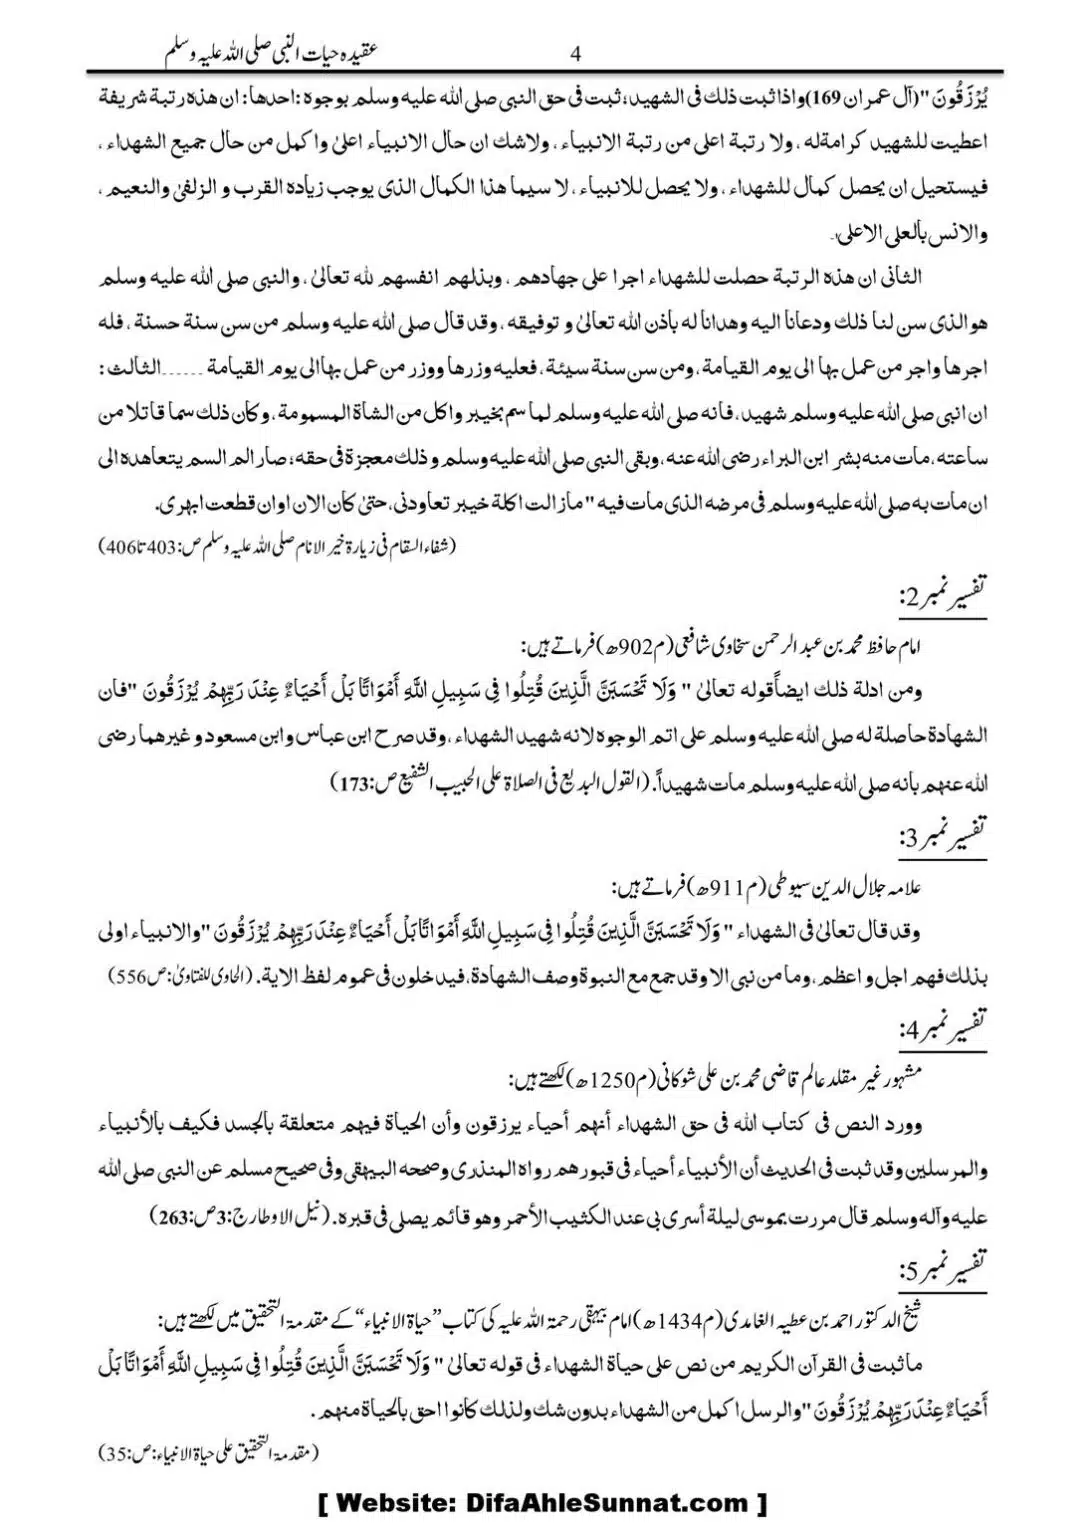 عقیدہ حیات النبی صلی اللہ علیہ وسلم 4
یُرْزَقُونَ "(آل عمران 169)واذا ثبت ذلك فی الشهید؛ ثبت فی حق النبی صلی الله علیه وسلم بوجوه :احدها: ان هذه رتبة شریفة
اعطیت للشهید کرامة له ، ولا رتبة اعلی من رتبة الانبیاء ، ولاشك ان حال الانبیاء اعلیٰ واکمل من حال جمیع الشهداء ،
فیستحیل ان یحصل کمال للشهداء ، ولا یحصل للانبیاء ، لا سیما هذا الکمال الذی یوجب زیاده القرب و الزلفیٰ والنعیم ،
والانس بالعلی الاعلیٰ۔
الثانی ان هذه الرتبة حصلت للشهداء اجرا علی جهادهم ، وبذلهم انفسهم لله تعالیٰ ، والنبی صلی الله علیه وسلم
هو الذی سن لنا ذلك ودعانا الیه وهدانا له بأذن الله تعالیٰ و توفیقه ، وقد قال صلی الله علیه وسلم من سن سنة حسنة ، فله
اجرها واجر من عمل بها الی یوم القیامة ، ومن سن سنة سیئة ، فعلیه وزرها ووزر من عمل بها الی یوم القیامة ......الثالث :
ان النبی صلی الله علیه وسلم شهید، فانه صلی الله علیه وسلم لما سم بخیبر واکل من الشاة المسمومة ، وکان ذلك سما قاتلا من
ساعته، مات منه بشر ابن البراء رضی الله عنه ، وبقی النبی صلی الله علیه وسلم وذلك معجزة فی حقه؛ صار الم السم یتعاهده الی
ان مات به صلی الله علیه وسلم فی مرضه الذی مات فیه " مازالت اکلة خیبر تعاودنی، حتیٰ کان الان اوان قطعت ابهری.
(شفاء السقام فی زیارة خیر الانام صلی اللہ علیہ وسلم ص:403تا406)
تفسیر نمبر 2:
امام حافظ محمد بن عبد الرحمن سخاوی شافعی (م902ھ) فرماتے ہیں:
ومن ادلة ذلك ایضاً قوله تعالیٰ " وَلَا تَحْسَبَنَّ الَّذِینَ قُتِلُوا فِی سَبِیلِ اللَّهِ أَمْوَاتًا بَلْ أَحْیَاءٌ عِنْدَ رَبِّهِمْ یُرْزَقُونَ "فان
الشهادة حاصلة له صلی الله علیه وسلم علی اتم الوجوه لانه شهید الشهداء ، وقد صرح ابن عباس وابن مسعود و غیرهما رضی
الله عنهم بأنه صلی الله علیه وسلم مات شهیداً. (القول البدیع فی الصلاة علی الحبیب الشفیع ص:173)
تفسیر نمبر 3:
علامہ جلال الدین سیوطی (م911ھ) فرماتے ہیں:
وقد قال تعالیٰ فی الشهداء " وَلَا تَحْسَبَنَّ الَّذِینَ قُتِلُوا فِی سَبِیلِ اللَّهِ أَمْوَاتًا بَلْ أَحْیَاءٌ عِنْدَ رَبِّهِمْ یُرْزَقُونَ "والانبیاء اولی
بذلك فهم اجل و اعظم ، وما من نبی الا وقد جمع مع النبوة وصف الشهادة، فیدخلون فی عموم لفظ الایة . (الحاوی للفتاویٰ: ص556)
تفسیر نمبر 4:
مشہور غیر مقلد عالم قاضی محمد بن علی شوکانی (م1250ھ) لکھتے ہیں:
وورد النص فی کتاب الله فی حق الشهداء أنهم أحیاء یرزقون وأن الحیاة فیهم متعلقة بالجسد فکیف بالأنبیاء
والمرسلین وقد ثبت فی الحدیث أن الأنبیاء أحیاء فی قبورهم رواه المنذری وصححه البیهقی وفی صحیح مسلم عن النبی صلی الله
علیه وآله وسلم قال مررت بموسی لیلة أسری بی عند الکثیب الأحمر وهو قائم یصلی فی قبره. (نیل الاوطار ج:3ص:263)
تفسیر نمبر 5:
شیخ الدکتور احمد بن عطیہ الغامدی (م1434ھ) امام بیہقی رحمۃ اللہ علیہ کی کتاب ”حیاۃ الانبیاء“ کے مقدمۃ التحقیق میں لکھتے ہیں:
ما ثبت فی القرآن الکریم من نص علی حیاة الشهداء فی قوله تعالیٰ " وَلَا تَحْسَبَنَّ الَّذِینَ قُتِلُوا فِی سَبِیلِ اللَّهِ أَمْوَاتًا بَلْ
أَحْیَاءٌ عِنْدَ رَبِّهِمْ یُرْزَقُونَ "والرسل اکمل من الشهداء بدون شك ولذلك کانوا احق بالحیاة منهم .
(مقدمۃ التحقیق علی حیاۃ الانبیاء: ص:35)
[ Website: DifaAhleSunnat.com ]